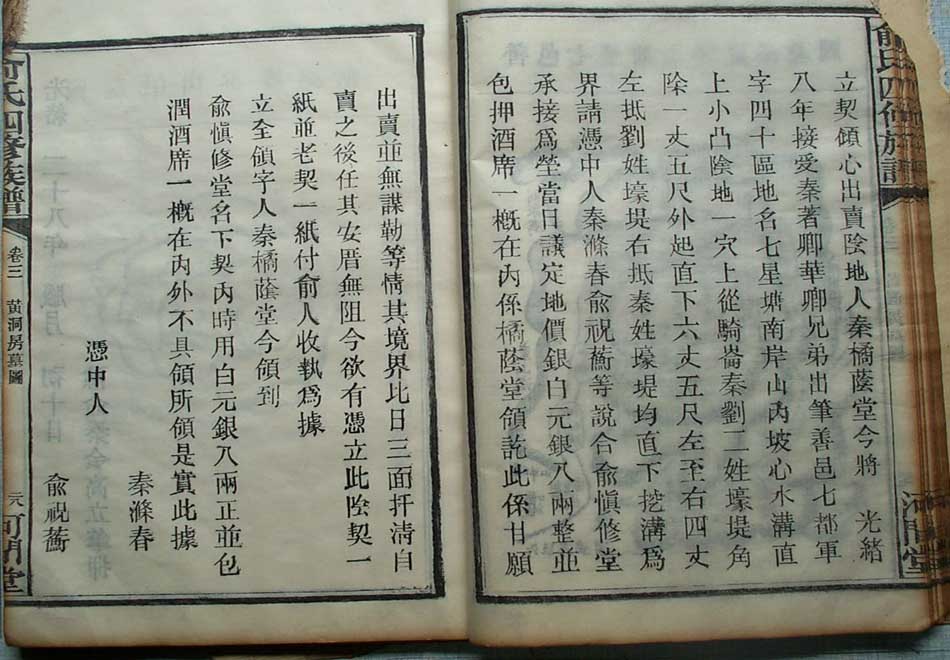 立契傾心出賣陰地人秦橘蔭堂今將 光緒
八年接愛秦著卿華卿兄弟出筆善邑七都軍
字四十區地名七星塘南岸山內坡心水溝直
上小凸陰地一穴上從騎崙秦劉二姓壕堤角
陰一丈五尺外起直下六丈五尺左至右四丈
左抵劉姓壕堤右抵秦姓壕堤均直下挖溝爲
界請憑中人秦滌春兪祝蘅等說合兪愼修堂
承接爲塋當日議定地價銀白元銀八兩整並
包押酒席一槪在內係橘蔭堂領訖此係甘願
出賣並無謀勒等情其境界比日三面扦淸自
賣之後任其安厝無阻今欲有憑立此陰契一
紙並老契一紙付俞人收執爲據
立全領字人秦橘蔭堂今領到
兪愼修堂名下契內時用白元銀八兩正並包
潤酒席一槪在內外不具領所領是實此據
憑中人
秦滌春
兪祝蘅
俞氏四修族譜
卷三
黃洞房墓圖
河間堂